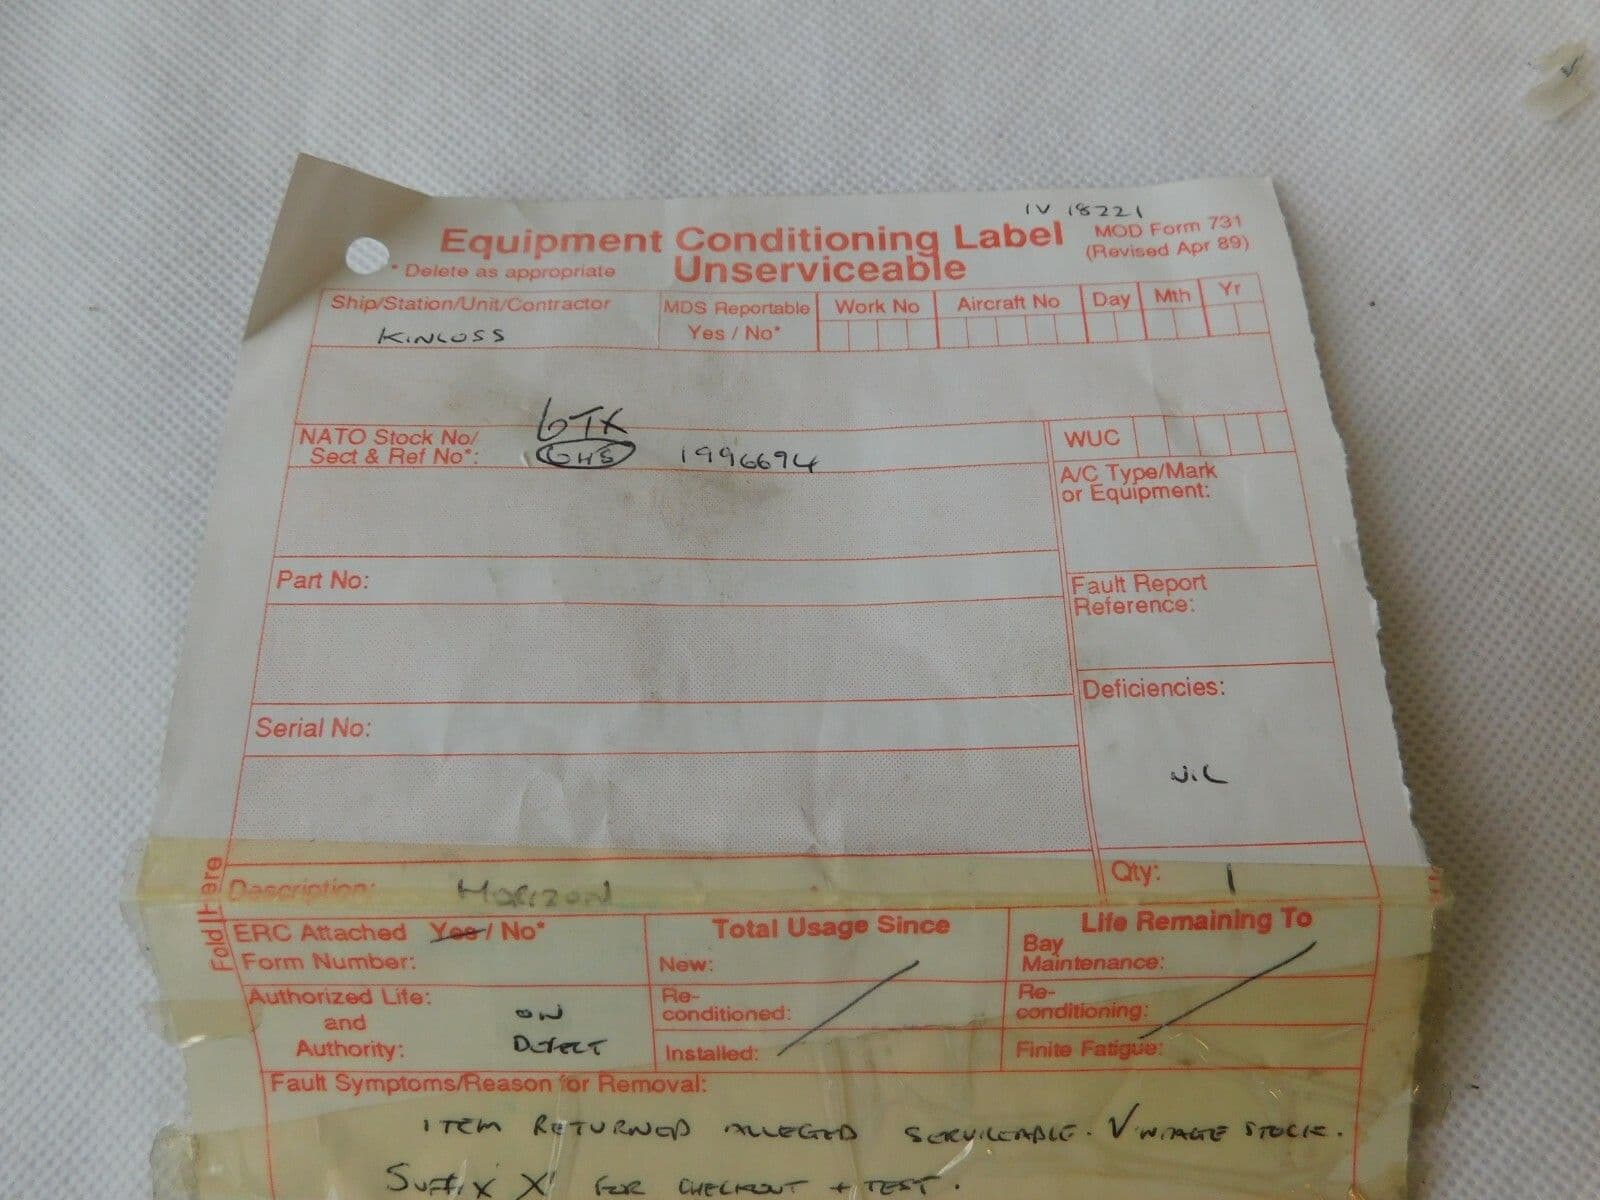 IV 18221
Equipment Conditioning Label
Unserviceable
MOD Form 731
(Revised Apr 89)
* Delete as appropriate
Ship/Station/Unit/Contractor
KINLOSS
MDS Reportable
Yes / No*
Work No
Aircraft No
Day
Mth
Yr
NATO Stock No/
Sect & Ref No*:
6TX
6HS 1996694
WUC
A/C Type/Mark
or Equipment:
Part No:
Fault Report
Reference:
Serial No:
Deficiencies:
NIL
Fold Here
Description: HORIZON
Qty: 1
ERC Attached Yes / No*
Form Number:
Authorized Life:
and
Authority:
ON
DEFECT
Total Usage Since
New:
Re-
conditioned:
Installed:
Life Remaining To
Bay
Maintenance:
Re-
conditioning:
Finite Fatigue:
Fault Symptoms/Reason for Removal:
ITEM RETURNED ALLEGED SERVICEABLE. VINTAGE STOCK.
SUFFIX X' FOR CHECKOUT + TEST.